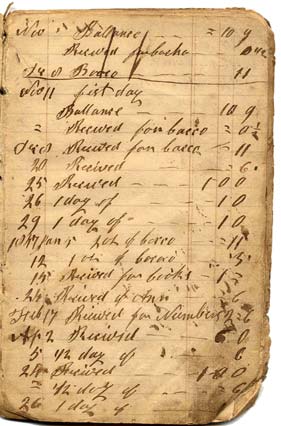 Nov 5 Ballance = 10 9
Recived for bacho 0
8 Bacco 11
Nov 11 first day
Ballance 10 9
= Recived for bacco = 0 ½
8 Recived for bacco = 11
20 Recived 6
25 Recived 1 0 0
26 1 day of 1 0
29 1 day of 1 0
1847 Jan 5 2 ot of bacco = 11
12 1 ot of bacco 5
15 Recived for books 1
24 Recived of Ann 6
Feb 17 Recived for Numbers 2 = 6
Ap 2 Recived 6 0
5 ½ day of 6
24 Recived 1 0 0
= ½ day of 6
26 1 day of